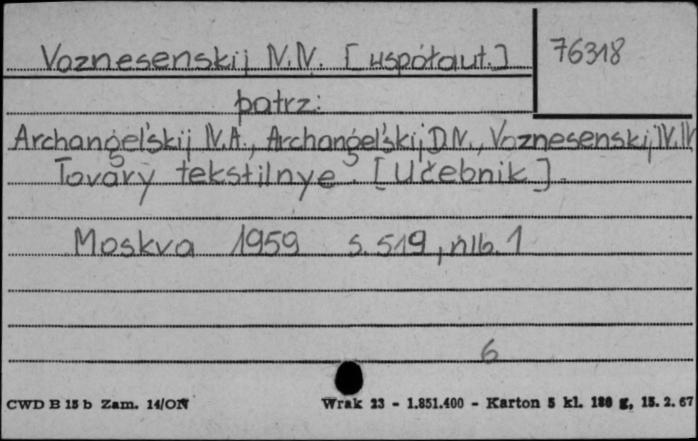 Voznesenskij N.N. [współaut.]
76318
patrz:
Archangel'skij N.A., Archangel'skij D.N., Voznesenskij N.N.
Tovary tekstilnye. [Učebnik].
Moskva 1959 s. 519, nlb. 1
6
CWD B 15 b Zam. 14/ON Wrak 23 - 1.851.400 - Karton 5 kl. 180 g, 15.2.67